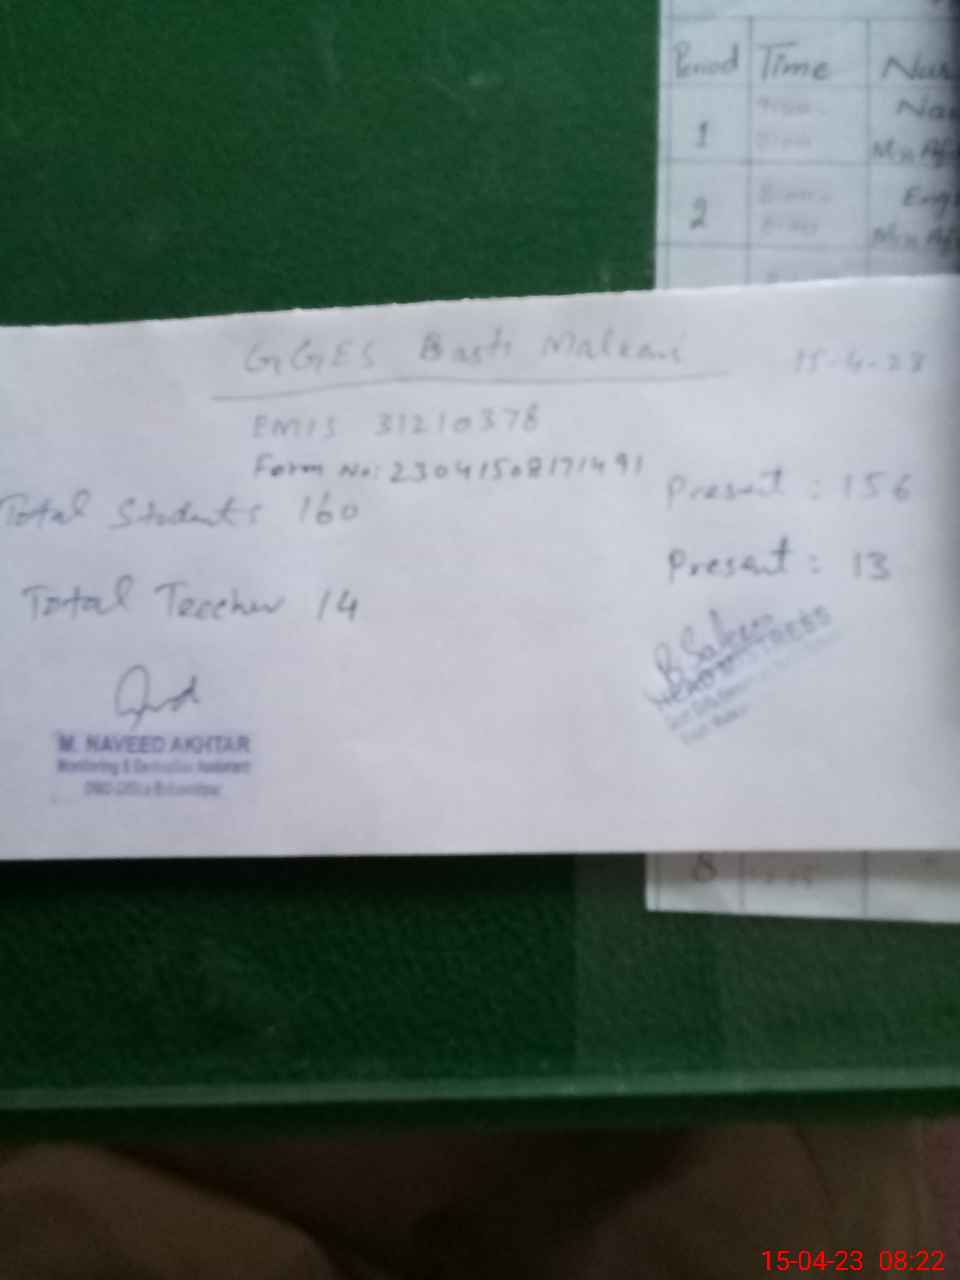 Period Time
1
2
GGES Basti Malkani 15-4-23
EMIS 31210378
Form No: 23041508171491
Total Students 160 Present : 156
Total Teacher 14 Present : 13
B Saleem
HEADMISTRESS
M. NAVEED AKHTAR
Monitoring & Evaluation Assistant
8
15-04-23 08:22